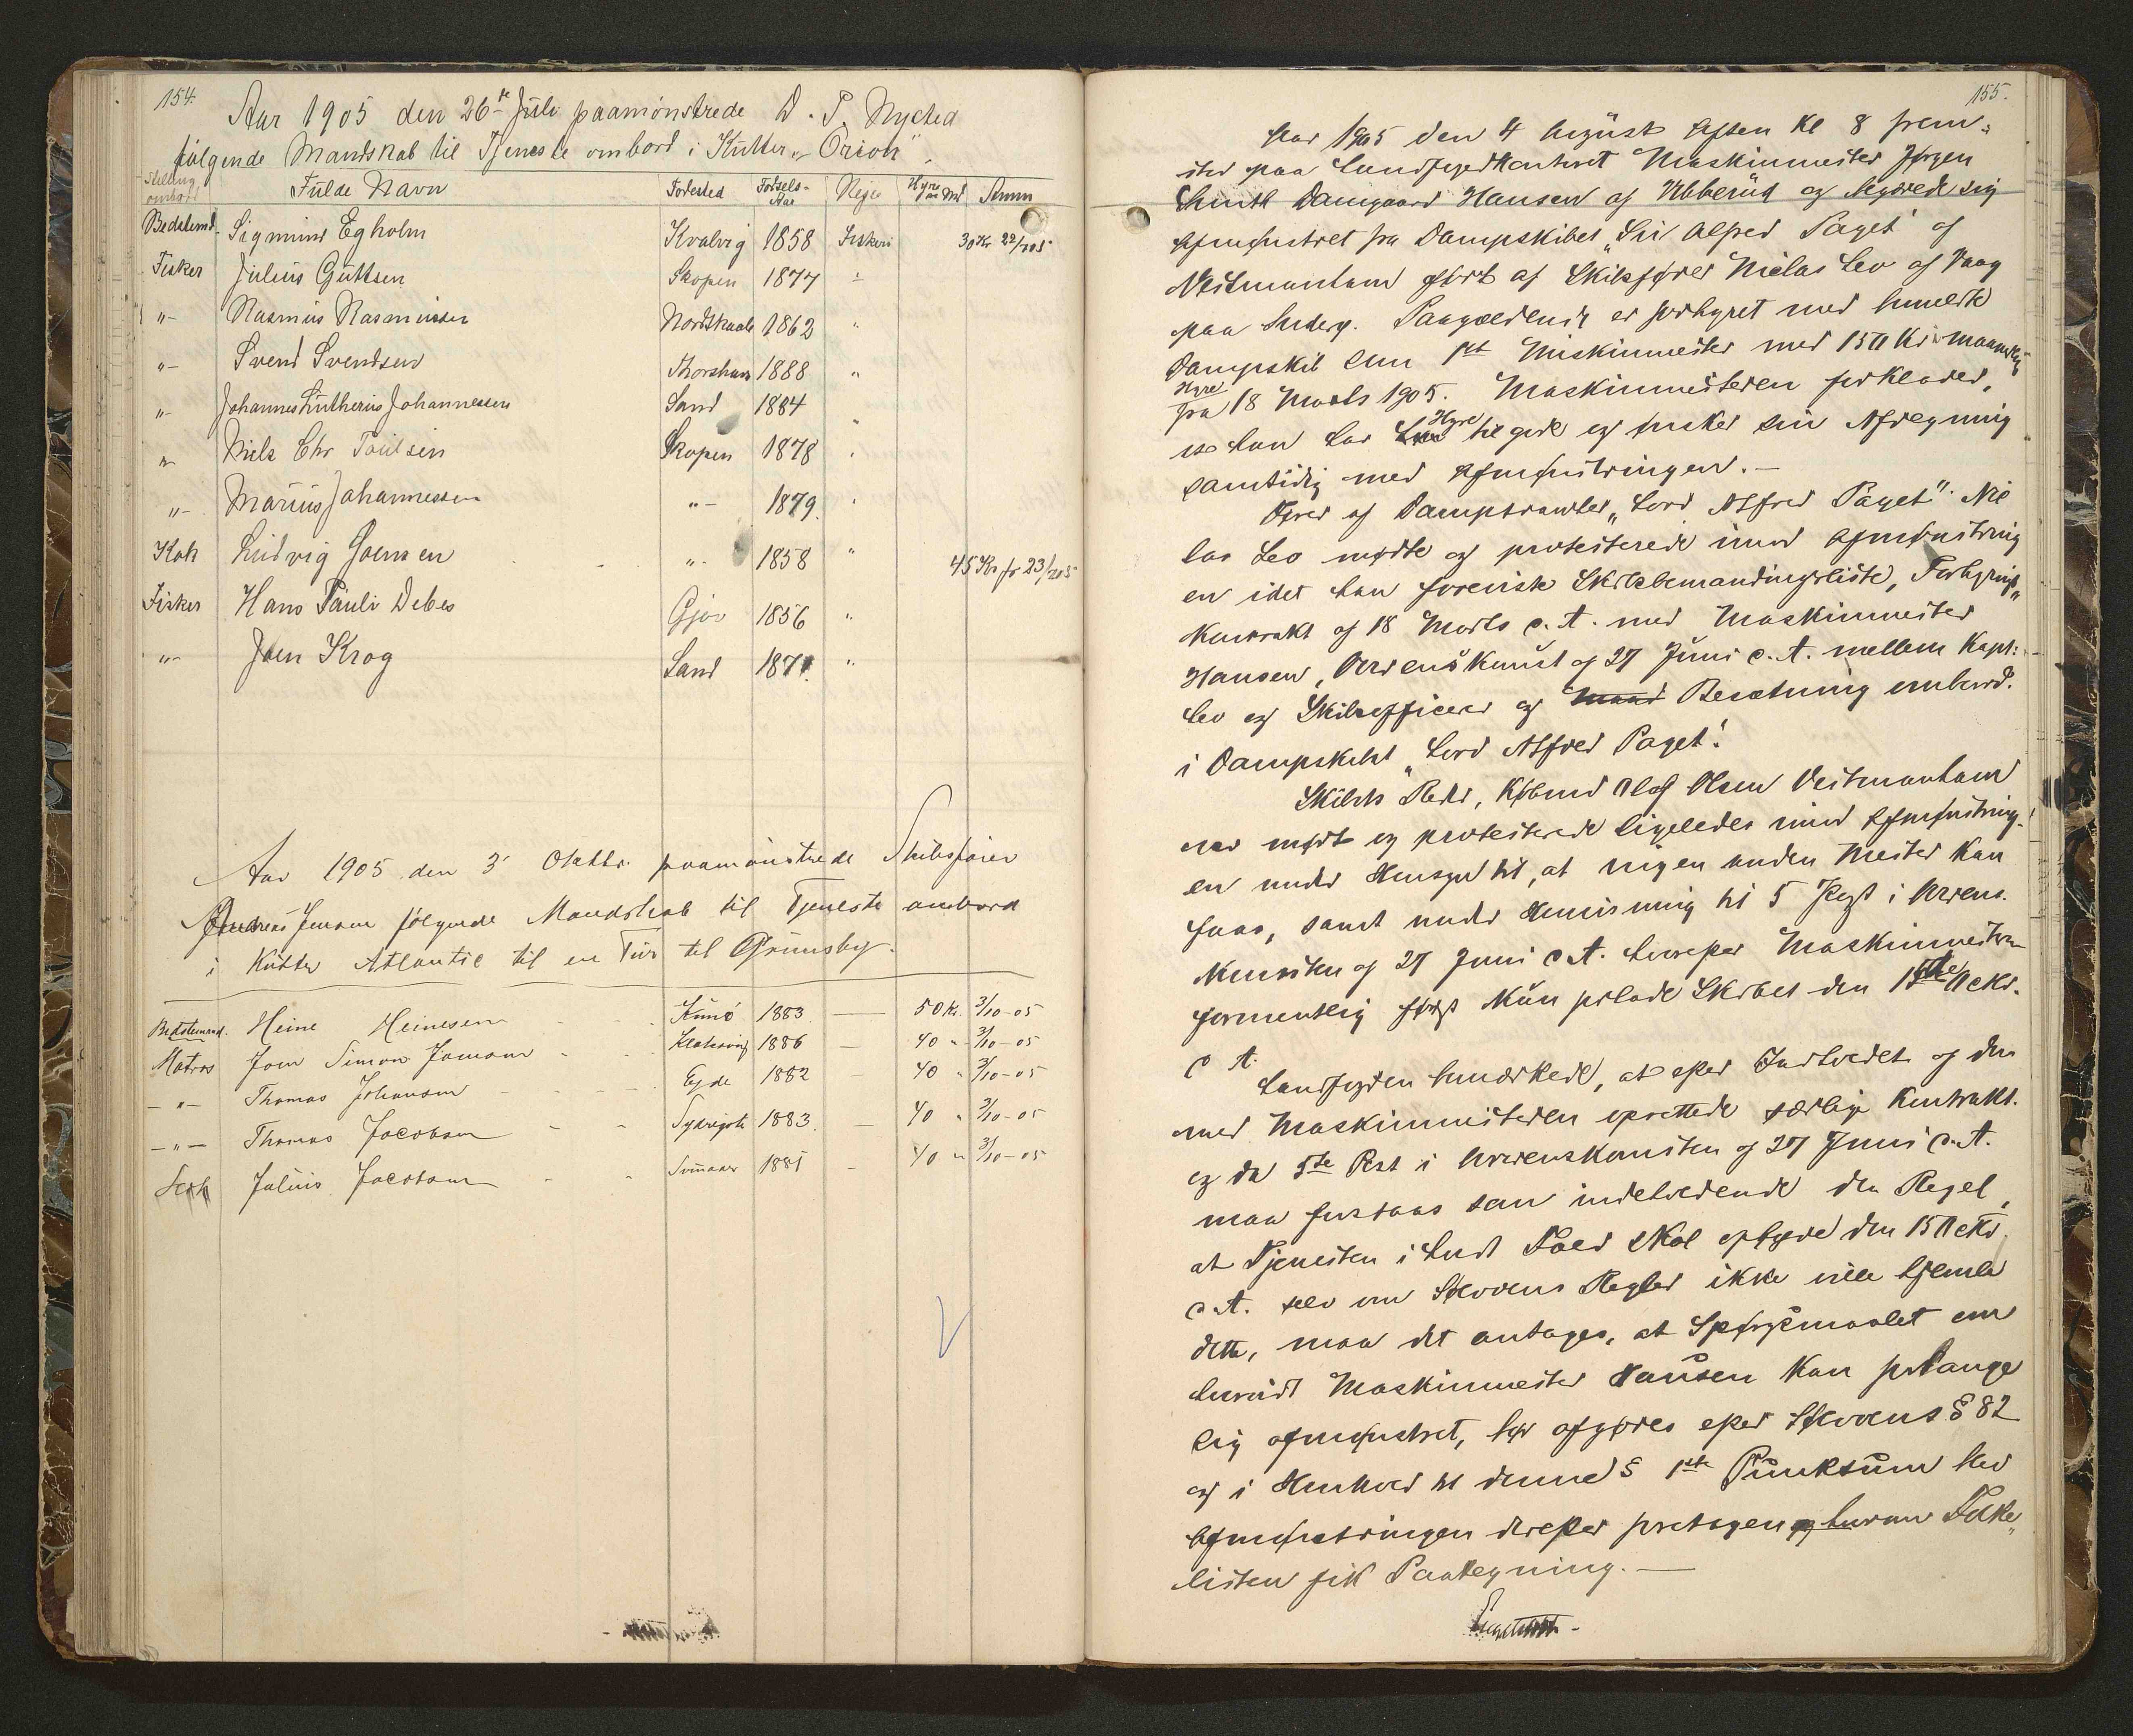 154.
Aar 1905 den 26de Juli paamønstrede D. P. Nysted
følgende Mandskab til Tjeneste ombord i Kutter „Orion".
Stilling ombord Fulde Navn Fødested Fødsels-Aar Rejse Hyre Anm
Bedstemd. Sigmund Egholm Kvalvig 1858 Fiskeri 30 Kr 22/7 05
Fisker Julius Guttsen Skopen 1877 "
"- Rasmus Rasmussen Nordskaale 1862 "
"- Svend Svendsen Thorshavn 1888 "
"- Johannes Lutherius Johannessen Sand 1884 "
"- Niels Chr Poulsen Skopen 1878 "
"- Marius Johannessen "- 1879. "
Kok Ludvig Joensen "- 1858 " 45 Kr fr 23/7 05
Fisker Hans Pauli Debes Gjov 1856 "
"- Joen Krog Sand 1871. "
Aar 1905 den 3' Oktbr. paamønstrede Skibsfører
Andreas Jensen følgende Mandskab til Tjeneste ombord
i Kutter Atlantic til en Tur til Grimsby.
Bedstemand. Heine Heinesen Kunø 1883 — 50 Kr. 3/10-05
Matros Joen Simon Joensen Klaksvig 1886 — 40 " 3/10-05
-"- Thomas Johansen Ejde 1882 — 40 " 3/10-05
-"- Thomas Jacobsen 1883. — 40 " 3/10-05
Kok Julius Jacobsen 1885 - 40 " 3/10-05
155.
Aar 1905 den 4 August Aften Kl 8 frem-
sted paa Landfogedkontoret Maskinmester Jørgen
Damgaard Hansen af Ubberud og begærede sig
afmønstret fra Dampskibet „Sir Alfred Paget" af
Vestmanhavn ført af Skibsfører Niclas Leo af Vaag
paa Suderø. Paagældende er forhyret med bemeldte
Dampskib som 1st Maskinmester med 150 Kr maanedlig
Hyre
fra 18 Marts 1905. Maskinmesteren forklarer,
at han har Hyre til gode og ønsker sin Afregning
samtidig med Afmønstringen.—
Fører af Damptrawler „Lord Alfred Paget" Nic
las Leo mødte og protesterede imod Afmønstring
en idet han foreviste Skibsbemandingsliste, Forhyrings„
Kontrakt af 18 Marts c. A. med Maskinmester
Hansen, Overenskomst af 27 Juni c. A. mellem Kapt:
Leo og Skibsofficerer og Mand Besætning ombord.
i Dampskibet „Lord Alfred Paget".
Skibets Reder, Købmd Olaf Olsen Vestmanhavn
var mødt og protesterede ligeledes imod Afmønstring-
en under Hensyn til, at ingen anden Mester kan
faas, samt under Henvisning til 5 Post i Overens-
komsten af 27 Juni c A. hvorefter Maskinmesteren
formentlig først kan forlade Skibet den 15de Octbr.
c A.
Landfogden bemærkede, at efter Indholdet af den
med Maskinmesteren oprettede særlige Kontrakt.
og da 5te Post i Overenskomsten af 27 Juni c. A.
maa forstaas som indeholdende den Regel,
at Tjenesten i hvert Fald skal ophøre den 15 Octbr
c. A. selv om Lovens Regler ikke ville hjemle
dette, maa det antages, at Spørgsmaalet om
hvorvidt Maskinmester Hansen kan forlange
sig afmønstret, bør afgøres efter Søloven § 82
og i Henhold til denne § 1ste Punktum blev
Afmønstringen derefter foretagen og hvorom Folke„
listen fik Paategning.—